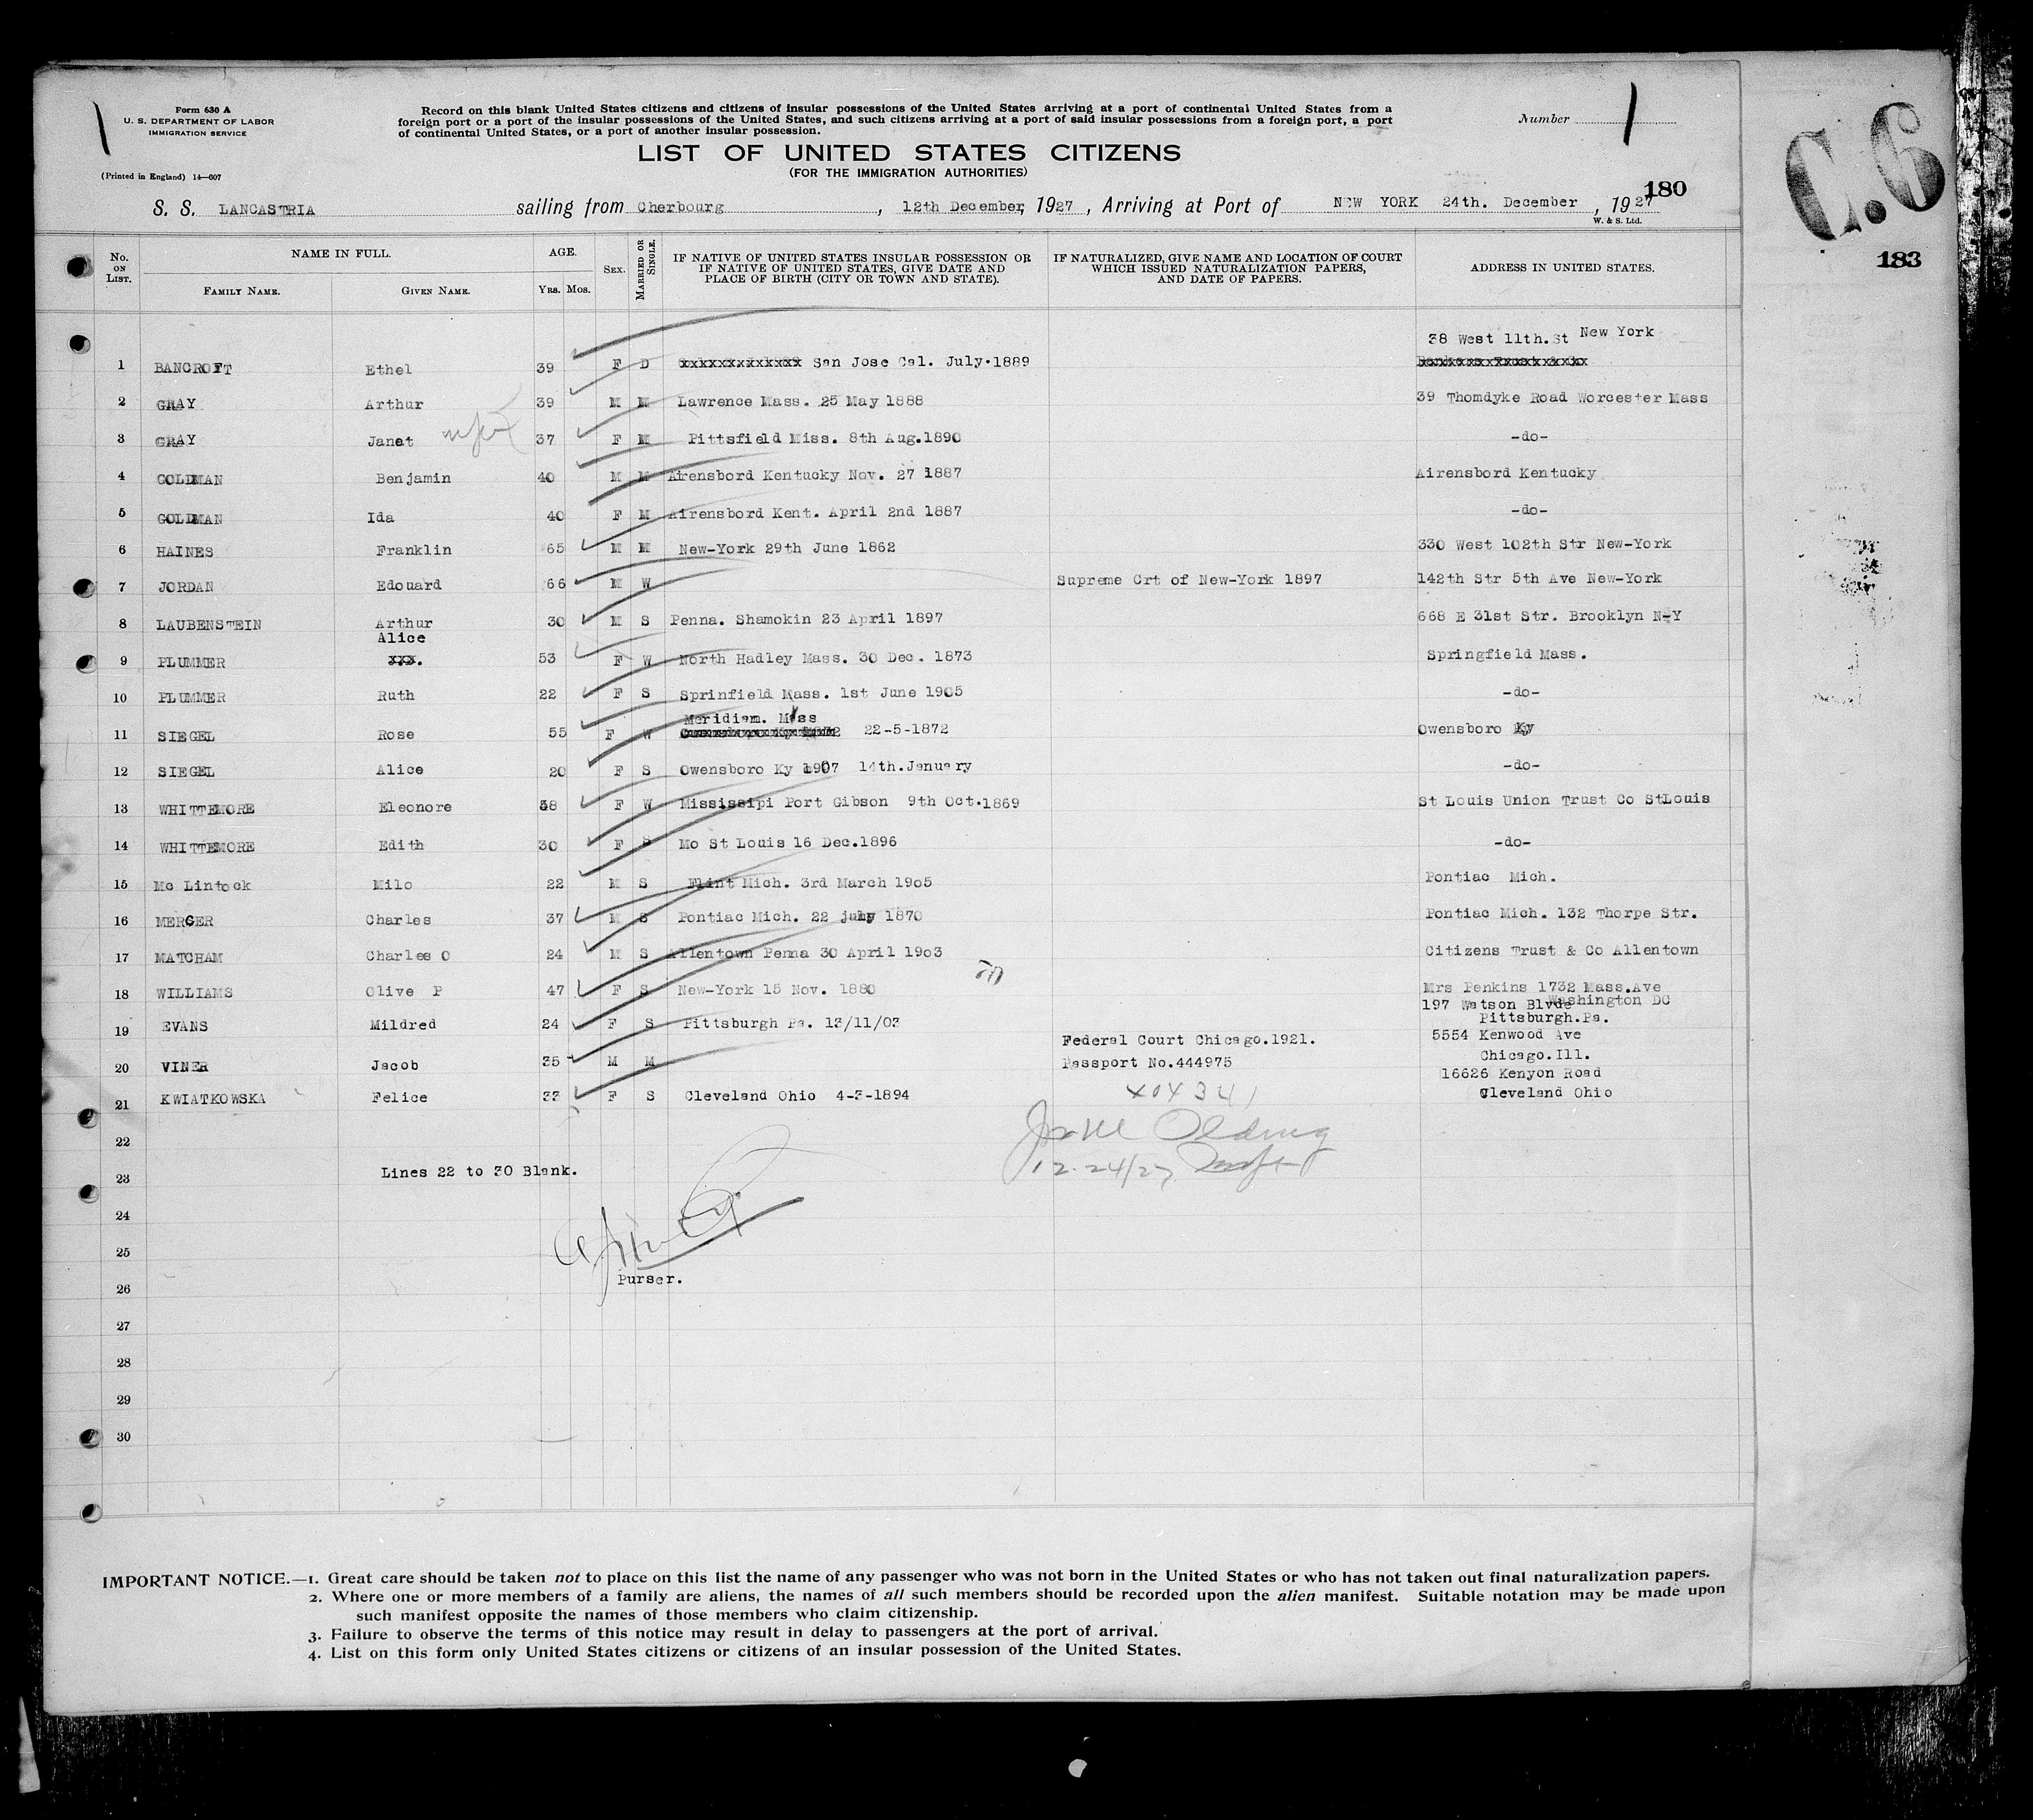 Form 630 A
U. S. DEPARTMENT OF LABOR
IMMIGRATION SERVICE
(Printed in England) 14—607
Record on this blank United States citizens and citizens of insular possessions of the United States arriving at a port of continental United States from a
foreign port or a port of the insular possessions of the United States, and such citizens arriving at a port of said insular possessions from a foreign port, a port
of continental United States, or a port of another insular possession.
Number 1
C.6
LIST OF UNITED STATES CITIZENS
(FOR THE IMMIGRATION AUTHORITIES)
180
S. S. LANCASTRIA sailing from Cherbourg , 12th December, 1927 , Arriving at Port of NEW YORK 24th. December , 1927
W. & S. Ltd.
183
No. ON LIST. NAME IN FULL. FAMILY NAME. GIVEN NAME. AGE. YRS. MOS. SEX. MARRIED OR SINGLE. IF NATIVE OF UNITED STATES INSULAR POSSESSION OR IF NATIVE OF UNITED STATES, GIVE DATE AND PLACE OF BIRTH (CITY OR TOWN AND STATE). IF NATURALIZED, GIVE NAME AND LOCATION OF COURT WHICH ISSUED NATURALIZATION PAPERS, AND DATE OF PAPERS. ADDRESS IN UNITED STATES.
38 West 11th.St New York
1 BANCROFT Ethel 39 F D San Jose Cal. July.1889
2 GRAY Arthur 39 M M Lawrence Mass. 25 May 1888 39 Thomdyke Road Worcester Mass
3 GRAY Janet 37 F M Pittsfield Miss. 8th Aug.1890 -do-
4 GOLDMAN Benjamin 40 M M Airensbord Kentucky Nov. 27 1887 Airensbord Kentucky
5 GOLDMAN Ida 40 F M Airensbord Kent. April 2nd 1887 -do-
6 HAINES Franklin 65 M M New-York 29th June 1862 330 West 102th Str New-York
7 JORDAN Edouard 66 M W Supreme Crt of New-York 1897 142th Str 5th Ave New-York
8 LAUBENSTEIN Arthur 30 M S Penna. Shamokin 23 April 1897 668 E 31st Str. Brooklyn N-Y
Alice
9 PLUMMER xxx. 53 F W North Hadley Mass. 30 Dec. 1873 Springfield Mass.
10 PLUMMER Ruth 22 F S Sprinfield Mass. 1st June 1905 -do-
Meridiam. Miss
11 SIEGEL Rose 55 F W 22-5-1872 Owensboro Ky
12 SIEGEL Alice 20 F S Owensboro Ky 1907 14th.January -do-
13 WHITTEMORE Eleonore 58 F W Mississipi Port Gibson 9th Oct.1869 St Louis Union Trust Co StLouis
14 WHITTEMORE Edith 30 F S Mo St Louis 16 Dec.1896 -do-
15 Mc Lintock Milo 22 M S Flint Mich. 3rd March 1905 Pontiac Mich.
16 MERGER Charles 37 M S Pontiac Mich. 22 july 1870 Pontiac Mich. 132 Thorpe Str.
17 MATCHAM Charles O 24 M S Allentown Penna 30 April 1903 Citizens Trust & Co Allentown
18 WILLIAMS Olive P 47 F S New-York 15 Nov. 1880 Mrs Perkins 1732 Mass.Ave
Washington DC
197 Watson Blvde
19 EVANS Mildred 24 F S Pittsburgh Pa. 13/11/03 Pittsburgh.Pa.
Federal Court Chicago.1921. 5554 Kenwood Ave
20 VINER Jacob 35 M M Passport No.444975 Chicago.Ill.
16626 Kenyon Road
21 KWIATKOWSKA Felice 33 F S Cleveland Ohio 4-3-1894 Cleveland Ohio
404341
22
12-24/27
23 Lines 22 to 30 Blank.
24
25
Purser.
26
27
28
29
30
IMPORTANT NOTICE.—1. Great care should be taken not to place on this list the name of any passenger who was not born in the United States or who has not taken out final naturalization papers.
2. Where one or more members of a family are aliens, the names of all such members should be recorded upon the alien manifest. Suitable notation may be made upon
such manifest opposite the names of those members who claim citizenship.
3. Failure to observe the terms of this notice may result in delay to passengers at the port of arrival.
4. List on this form only United States citizens or citizens of an insular possession of the United States.